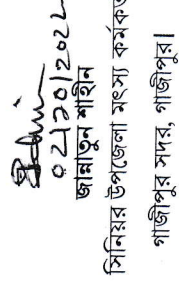 ০২/১০/২০২২
জান্নাতুন শাহীন
সিনিয়র উপজেলা মৎস্য কর্মকর্
গাজীপুর সদর, গাজীপুর।